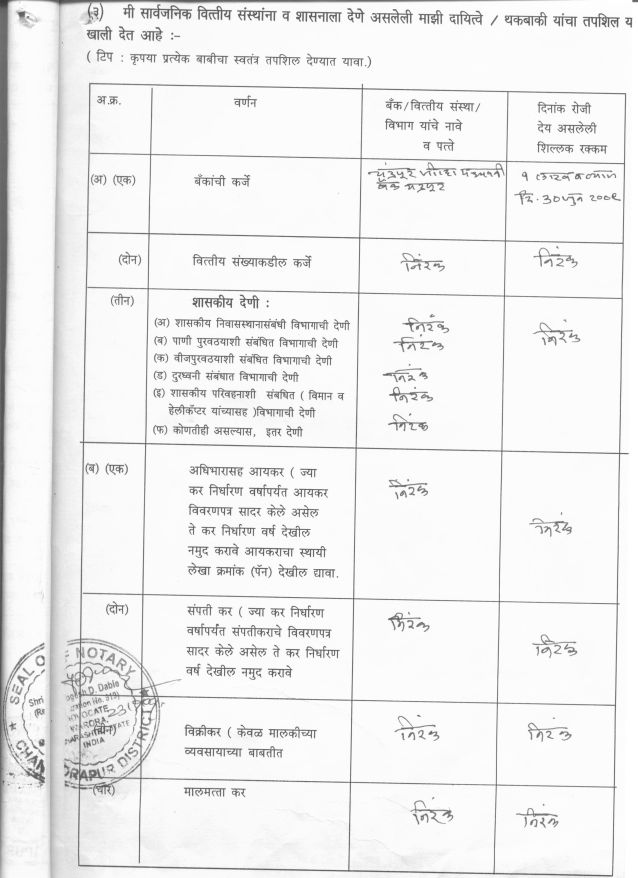 (३) मी सार्वजनिक वित्तीय संस्थांना व शासनाला देणे असलेली माझी दायित्वे / थकबाकी यांचा तपशिल य
खाली देत आहे :-
( टिप : कृपया प्रत्येक बाबीचा स्वतंत्र तपशिल देण्यात यावा.)
अ.क्र. वर्णन बँक/वित्तीय संस्था/ दिनांक रोजी
विभाग यांचे नावे देय असलेली
व पत्ते शिल्लक रक्कम
(अ) (एक) बँकांची कर्जे चंद्रपूर जिल्हा मध्यवर्ती १ लाख व व्याज
बँक चंद्रपूर दि. ३० जुन २००९
(दोन) वित्तीय संख्याकडील कर्जे निरंक निरंक
(तीन) शासकीय देणी :
(अ) शासकीय निवासस्थानासंबंधी विभागाची देणी निरंक निरंक
(ब) पाणी पुरवठयाशी संबंधित विभागाची देणी निरंक
(क) वीजपुरवठयाशी संबंधित विभागाची देणी
(ड) दुरध्वनी संबंधात विभागाची देणी निरंक
(इ) शासकीय परिवहनाशी संबधित ( विमान व निरंक
हेलीकॅप्टर यांच्यासह )विभागाची देणी
(फ) कोणतीही असल्यास, इतर देणी निरंक
(ब) (एक) अधिभारासह आयकर ( ज्या
कर निर्धारण वर्षापर्यंत आयकर निरंक
विवरणपत्र सादर केले असेल
ते कर निर्धारण वर्ष देखील निरंक
नमुद करावे आयकराचा स्थायी
लेखा क्रमांक (पॅन) देखील द्यावा.
(दोन) संपती कर ( ज्या कर निर्धारण निरंक
वर्षापर्यंत संपतीकराचे विवरणपत्र
सादर केले असेल ते कर निर्धारण निरंक
वर्ष देखील नमुद करावे
SEAL OF NOTARY
Shri
D. Dable
ADVOCATE
WARORA
MAHARASHTRA STATE
INDIA
CHANDRAPUR DISTRICT
(तीन) विक्रीकर ( केवळ मालकीच्या निरंक निरंक
व्यवसायाच्या बाबतीत
(चार) मालमत्ता कर निरंक निरंक